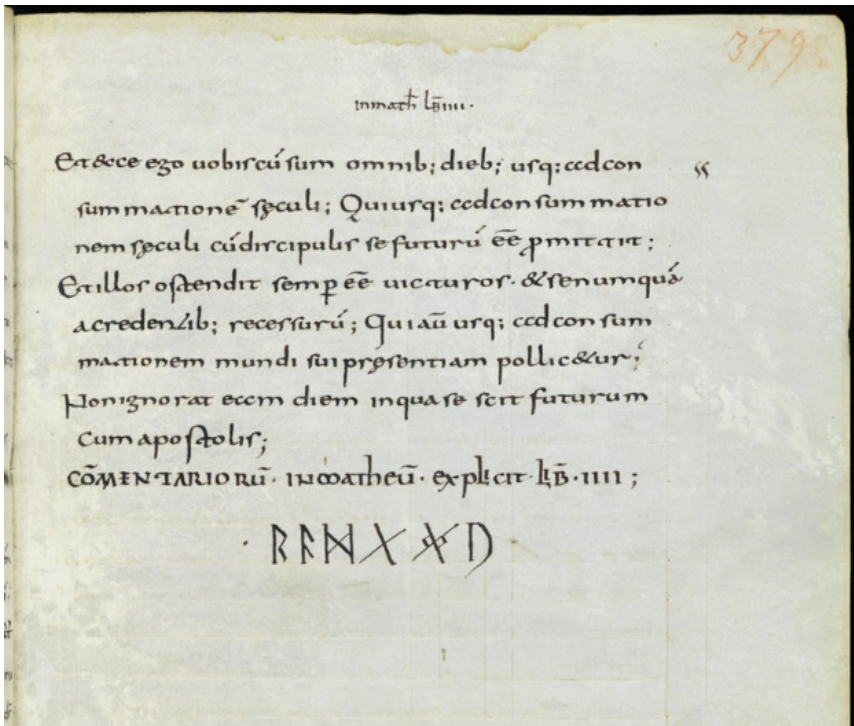 379
inmath lb̄ IIII·
Et ecce ego uobiscū sum omnib; dieb; usq; ad con
summationē sęculi; Qui usq; ad consummatio
nem sęculi cū discipulis se futurū eē̄ promittit;
Et illos ostendit semp̱ eē̄ uicturos· & se numquā
a credentib; recessurū; Qui aū usq; ad consum
mationem mundi sui pręsentiam pollic&ur;
Non ignorat eam diem in qua se scit futurum
Cum apostolis;
COM̄ENTARIORŪ· IN matheū· explicit· LIB̄· IIII;